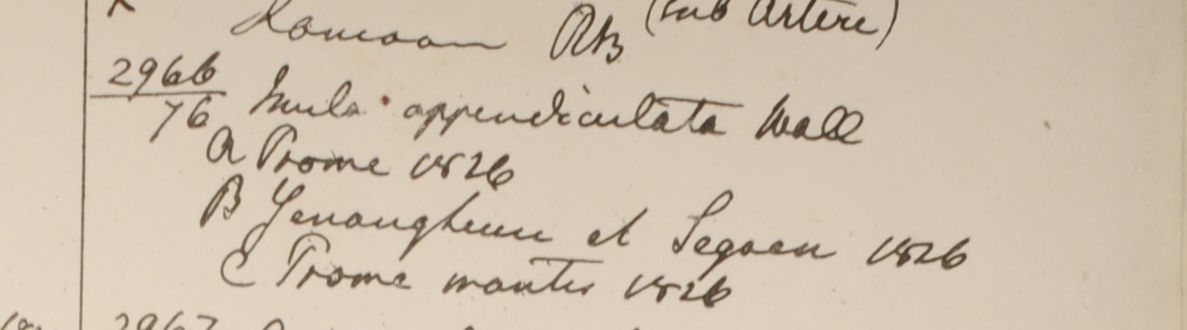 Kamaon RB (sub Artere)
2966
76 Inula appendiculata Wall
A Prome 1826
B Yenangheun et Segaen 1826
C Prome montes 1826
2967